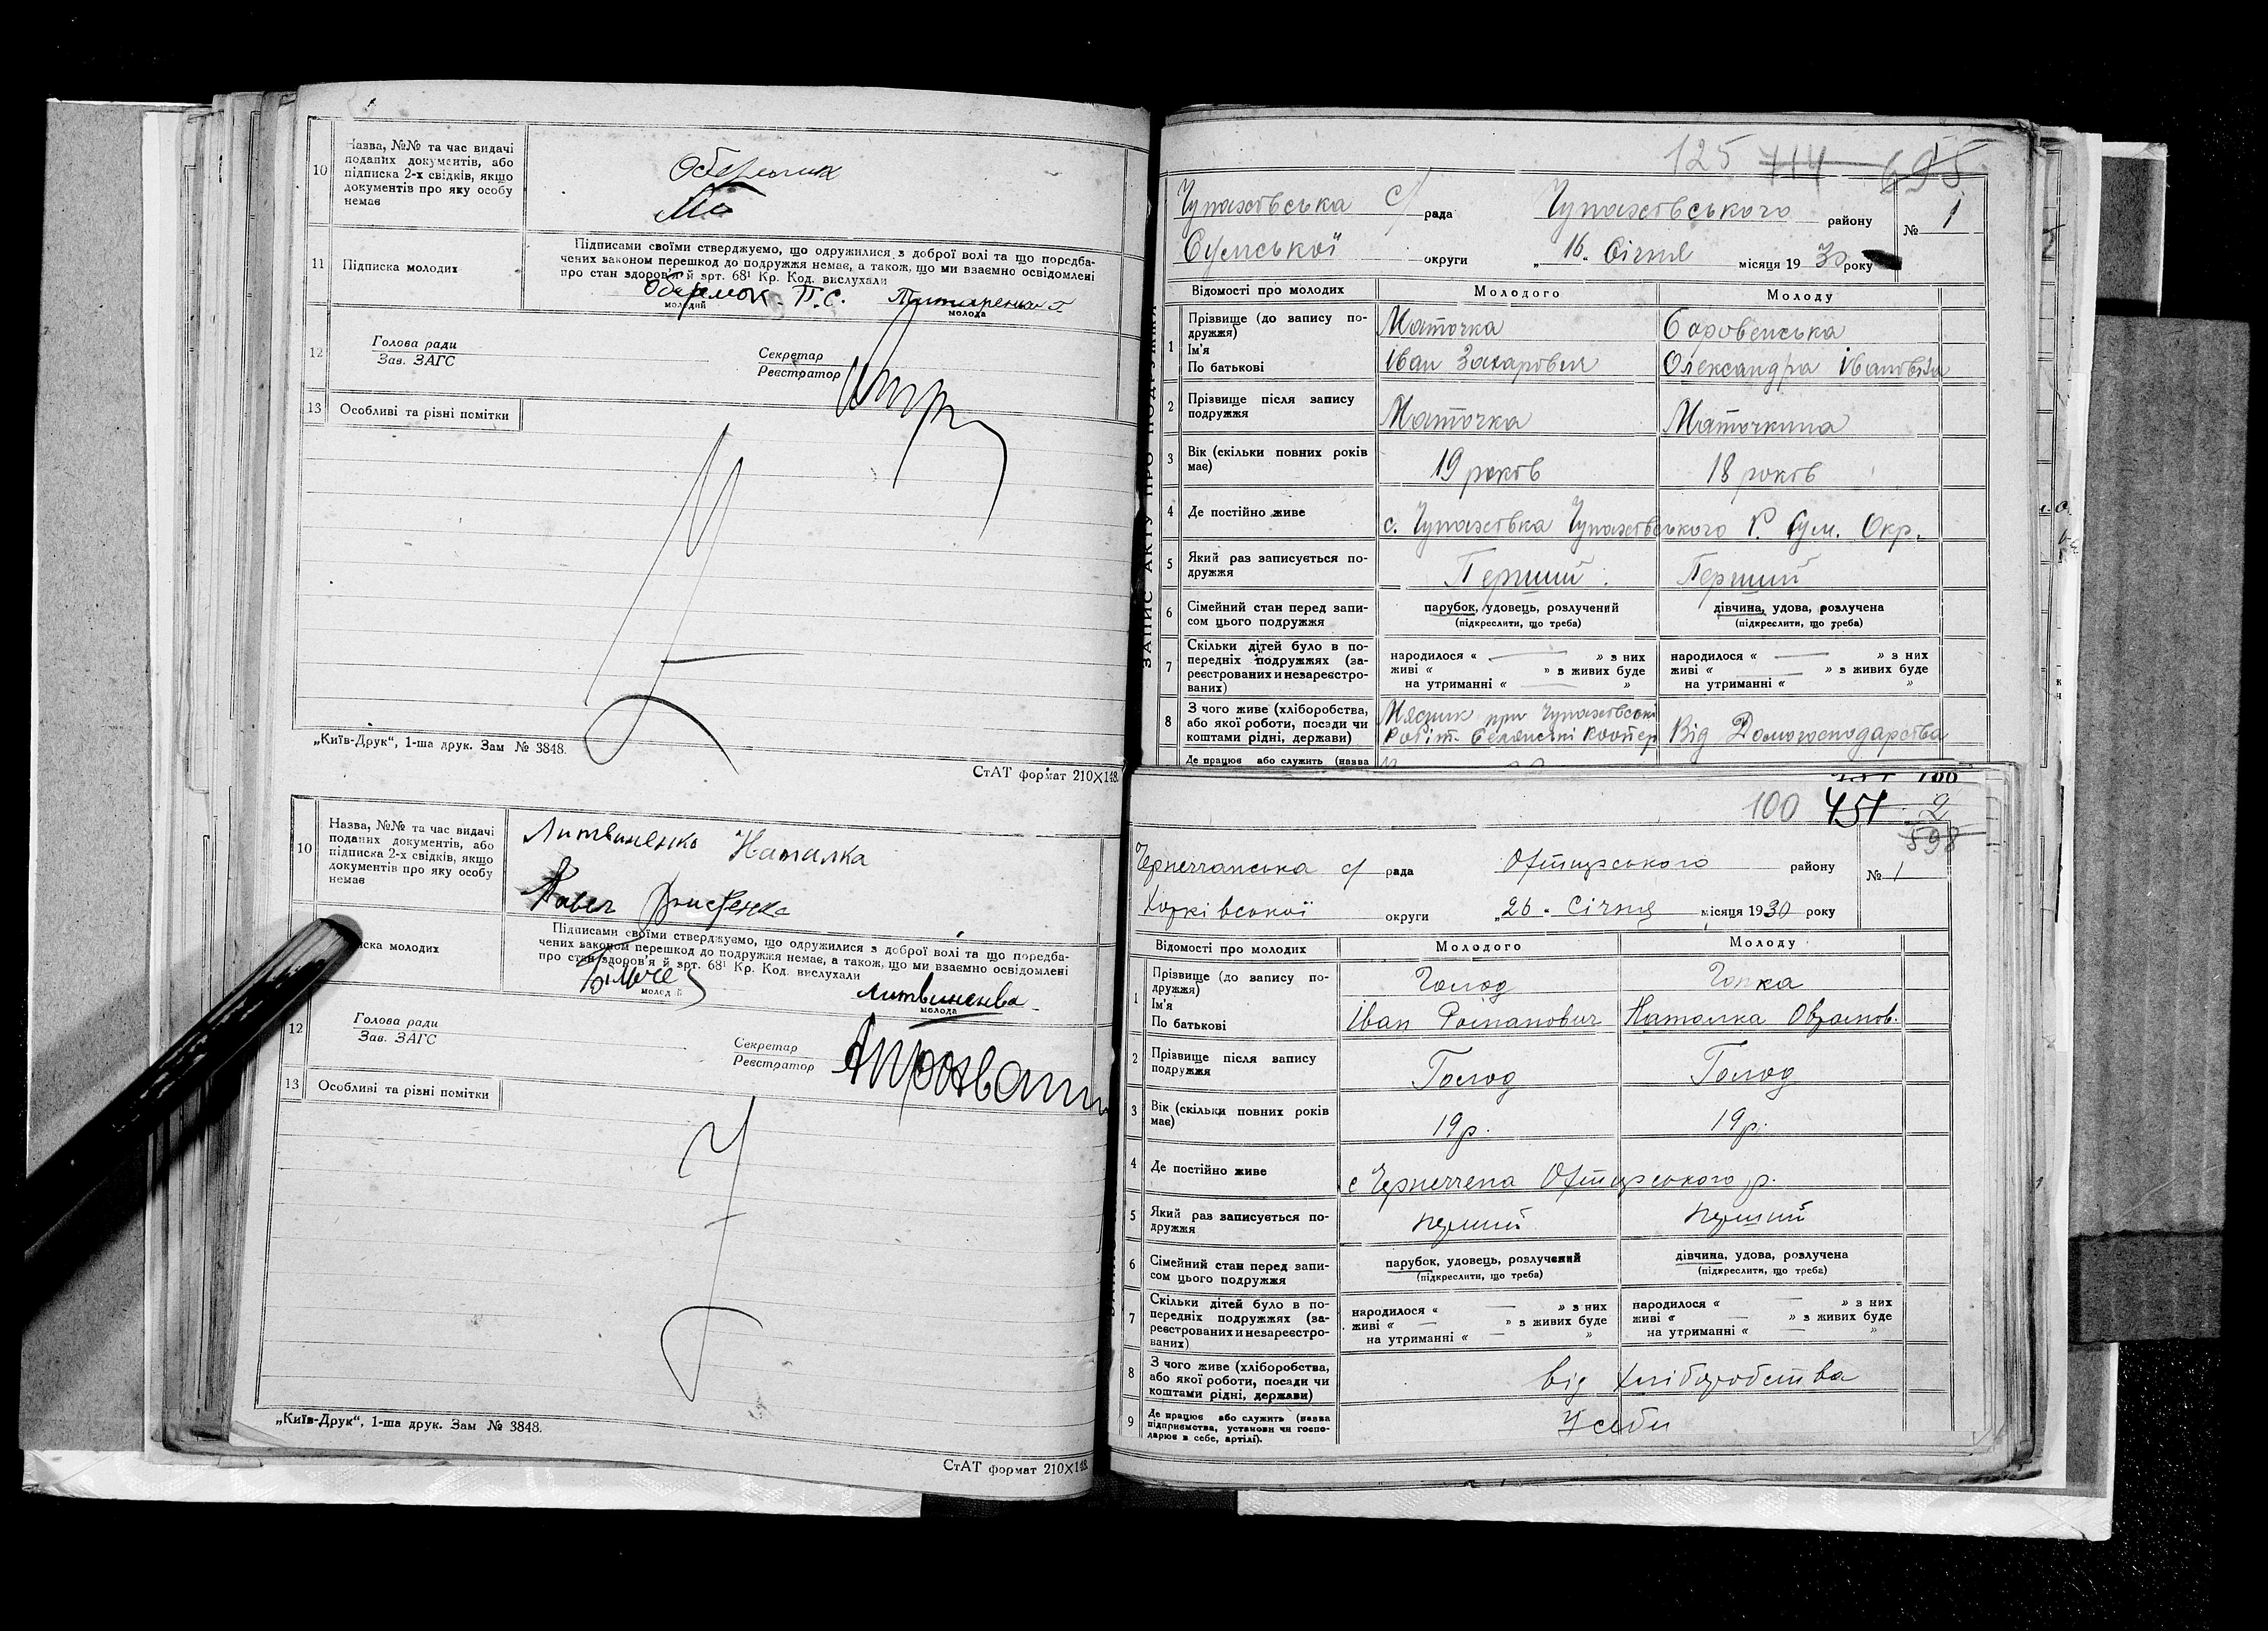 10
Назва, №№ та час видачі
поданих документів, або
підписка 2-х свідків, якщо
документів про яку особу
немає
11
Підписка молодих
Підписами своїми стверджуємо, що одружилися з доброї волі та що передба-
чених законом перешкод до подружжя немає, а також, що ми взаємно освідомлені
про стан здоров'я й арт. 68¹ Кр. Код. вислухали
Оберемок. П. С.
молодий
молода
12
Голова ради
Зав. ЗАГС
Секретар
Реєстратор
13
Особливі та різні помітки
„Київ-Друк“, 1-ша друк. Зам № 3848.
СтАТ формат 210×148.
10
Назва, №№ та час видачі
поданих документів, або
підписка 2-х свідків, якщо
документів про яку особу
немає
Литвиненко Наталка
Павел
иска молодих
Підписами своїми стверджуємо, що одружилися з доброї волі та що передба-
чених законом перешкод до подружжя немає, а також, що ми взаємно освідомлені
про стан здоров'я й арт. 68¹ Кр. Код. вислухали
молодий
молода
12
Голова ради
Зав. ЗАГС
Секретар
Реєстратор
13
Особливі та різні помітки
„Київ-Друк“, 1-ша друк. Зам № 3848.
СтАТ формат 210×148.
125 714 695
Чупахівська с/ рада Чупахівського району № 1
Сумської округи „16. Січня місяця 1930 року
ЗАПИС АКТУ ПРО ПОДРУЖЖЯ
Відомості про молодих Молодого Молоду
1
Прізвище (до запису по-
дружжя)
Ім'я
По батькові
Маточка
Іван Захарович
Боровенська
Олександра Івановна
2
Прізвище після запису
подружжя
Маточка
Маточкина
3
Вік (скільки повних років
має)
19 років
18 років
4
Де постійно живе
с. Чупахівка Чупахівського Р. Сум. Окр.
5
Який раз записується по-
дружжя
Перший
Перший
6
Сімейний стан перед запи-
сом цього подружжя
парубок, удовець, розлучений
(підкреслити, що треба)
дівчина, удова, розлучена
(підкреслити, що треба)
7
Скільки дітей було в по-
передніх подружжях (за-
реєстрованих и незареєстро-
ваних)
народилося « — » з них
живі « » з живих буде
на утриманні « — »
народилося « — » з них
живі « — » з живих буде
на утриманні « »
8
З чого живе (хліборобства,
або якої роботи, посади чи
коштами рідні, держави)
Мясник при Чупахівські
Робіт. Селянські Коопер
Від Домогосподарства
Де працює або служить (назва
100 451 2
598
Чернеччанська с/ рада Охтирського району № 1
Харківської округи „26. Січня місяця 1930 року
Відомості про молодих Молодого Молоду
1
Прізвище (до запису по-
дружжя)
Ім'я
По батькові
Голод
Іван Романович
Наталка Оврамов.
2
Прізвище після запису
подружжя
Голод
Голод
3
Вік (скільки повних років
має)
19р.
19р.
4
Де постійно живе
с Чернеччена Охтирського р.
5
Який раз записується по-
дружжя
перший
перший
6
Сімейний стан перед запи-
сом цього подружжя
парубок, удовець, розлучений
(підкреслити, що треба)
дівчина, удова, розлучена
(підкреслити, що треба)
7
Скільки дітей було в по-
передніх подружжях (за-
реєстрованих и незареєстро-
ваних)
народилося « — » з них
живі « — » з живих буде
на утриманні « — »
народилося « — » з них
живі « — » з живих буде
на утриманні « — »
8
З чого живе (хліборобства,
або якої роботи, посади чи
коштами рідні, держави)
від хліборобства
9
Де працює або служить (назва
підприємства, установи чи госпо-
дарює в себе, артілі).
У себи